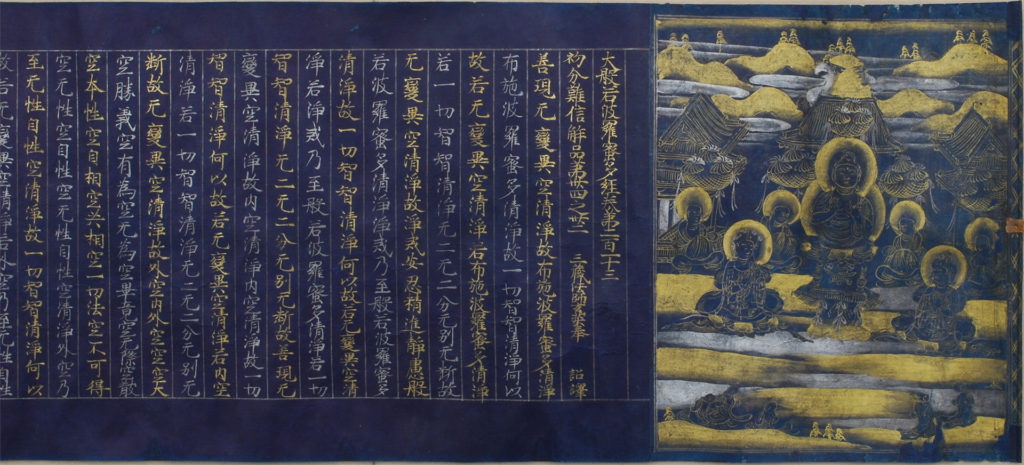 大般若波羅蜜多經卷第二百二十三
初分難信解品第卅四之卌二 三藏法師玄奘奉 詔譯
善現无變異空清淨故布施波羅蜜多清淨
布施波羅蜜多清淨故一切智智清淨何以
故若无變異空清淨若布施波羅蜜多清淨
若一切智智清淨无二无二分无別无斷故
无變異空清淨故淨戒安忍精進靜慮般
若波羅蜜多清淨淨戒乃至般若波羅蜜多
清淨故一切智智清淨何以故若无變異空清
淨若淨戒乃至般若波羅蜜多清淨若一切
智智清淨无二无二分无別无斷故善現无
變異空清淨故内空清淨内空清淨故一切
智智清淨何以故若无變異空清淨若内空
清淨若一切智智清淨无二无二分无別无
斷故无變異空清淨故外空内外空空空大
空勝義空有為空无為空畢竟空无際空散
空本性空自相空共相空一切法空不可得
空无性空自性空无性自性空清淨外空乃
至无性自性空清淨故一切智智清淨何以
故若无變異空清淨若外空乃至无性自性